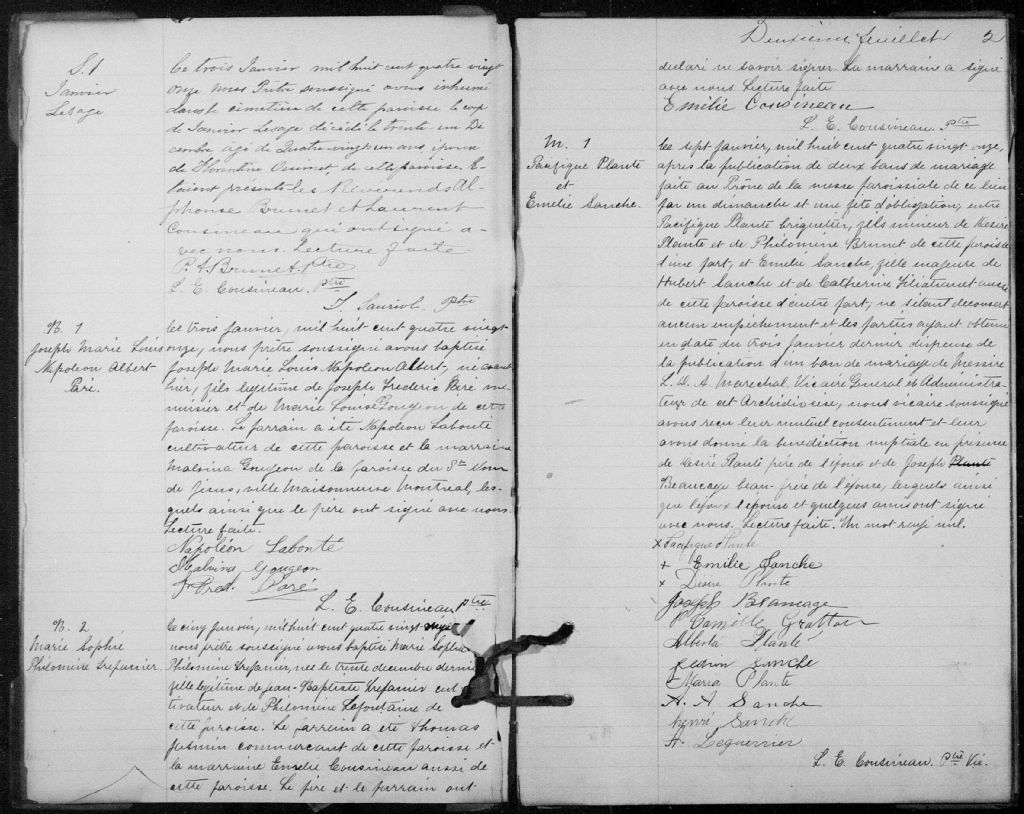 S. 1
Janvier
Lesage
Le trois Janvier mil huit cent quatre vingt
onze nous Prêtre soussigné avons inhumé
dans le cimetière de cette paroisse le corp
de Janvier Lesage décédé le trente un Dé
cembre agé de Quatre-vingt un ans, époux
de Florentine Ouimet, de cette paroisse. E
taient presents les Révérends Al-
phonse Brunet et Laurent
Cousineau qui ont signé a-
vec nous. Lecture faite
P. A. Brunet Ptre
L. E. Cousineau. Ptre
J. Sauriol. Ptre
B. 1
Joseph Marie Louis
Napoléon Albert
Paré.
Le trois janvier, mil huit cent quatre vingt
onze, nous prêtre soussigné avons baptisé
Joseph Marie Louis Napoléon Albert, né avant
hier, fils legitime de Joseph Frederic Paré me-
nuisier et de Marie Louise Gougeon de cette
paroisse. Le parrain a été Napoléon Labonté
cultivateur de cette paroisse et la marraine
Malvina Gougeon de la paroisse du St Nom
de Jésus, ville Maisonneuve Montreal, les-
quels ainsi que le père ont signé avec nous.
Lecture faite.
Napoléon Labonté
Malvina Gougeon
Fred. Paré
L. E. Cousineau Ptre
B. 2
Marie Sophie
Philomine Trepanier.
Le cinq janvier, mil huit cent quatre vingt
nous prêtre soussigné avons baptisé Marie Sophie
Philomine Trepanier, née le trente decembre dernier
fille legitime de Jean-Baptiste Trepanier cul
tivateur et de Philomine Lafontaine de
cette paroisse. Le parrain a été Thomas
Jasmin commercant de cette paroisse et
la marraine Emelie Cousineau aussi de
cette paroisse. Le père et le parrain ont
Deuxième feuillet 2
declaré ne savoir signer. La marraine a signé
avec nous. Lecture faite
Emélie Cousineau
L. E. Cousineau. Ptre
M. 1
Pacifique Plante
et
Emelie Sanche.
Le sept Janvier, mil huit cent quatre vingt onze,
après la publication de deux bans de mariage
faite au Prône de la messe paroissiale de ce lieu
par un dimanche et une fête d'obligation, entre
Pacifique Plante briquetier, fils mineur de Desiré
Plante et de Philomine Brunet de cette paroisse
d'une part, et Emélie Sanche, fille majeure de
Hubert Sanche et de Catherine Filiatrault aussi
de cette paroisse d'autre part, ne s'étant decouvert
aucun empêchement et les parties ayant obtenu
en date du trois janvier dernier dispense de
la publication d'un ban de mariage de Messire
L. D. A. Marechal, Vicaire General et Administra-
teur de cet Archidiocèse, nous vicaire soussigné
avons reçu leur mutuel consentement et leur
avons donné la benediction nuptiale en présence
de Desiré Plante père de l'époux et de Joseph Plante
Beaucage beau-frère de l'épouse, lesquels ainsi
que l'époux l'épouse et quelques amis ont signé
avec nous. Lecture faite. Un mot rayé nul.
x Pacifique Plante
+ Emilie Sanche
x Desire Plante
Joseph
Camille Gratton
Alberta Plante
Sanche
Maria Plante
A. A Sanche
Henri Sanche
A. Leguerrier
L. E. Cousineau. Ptre Vic.